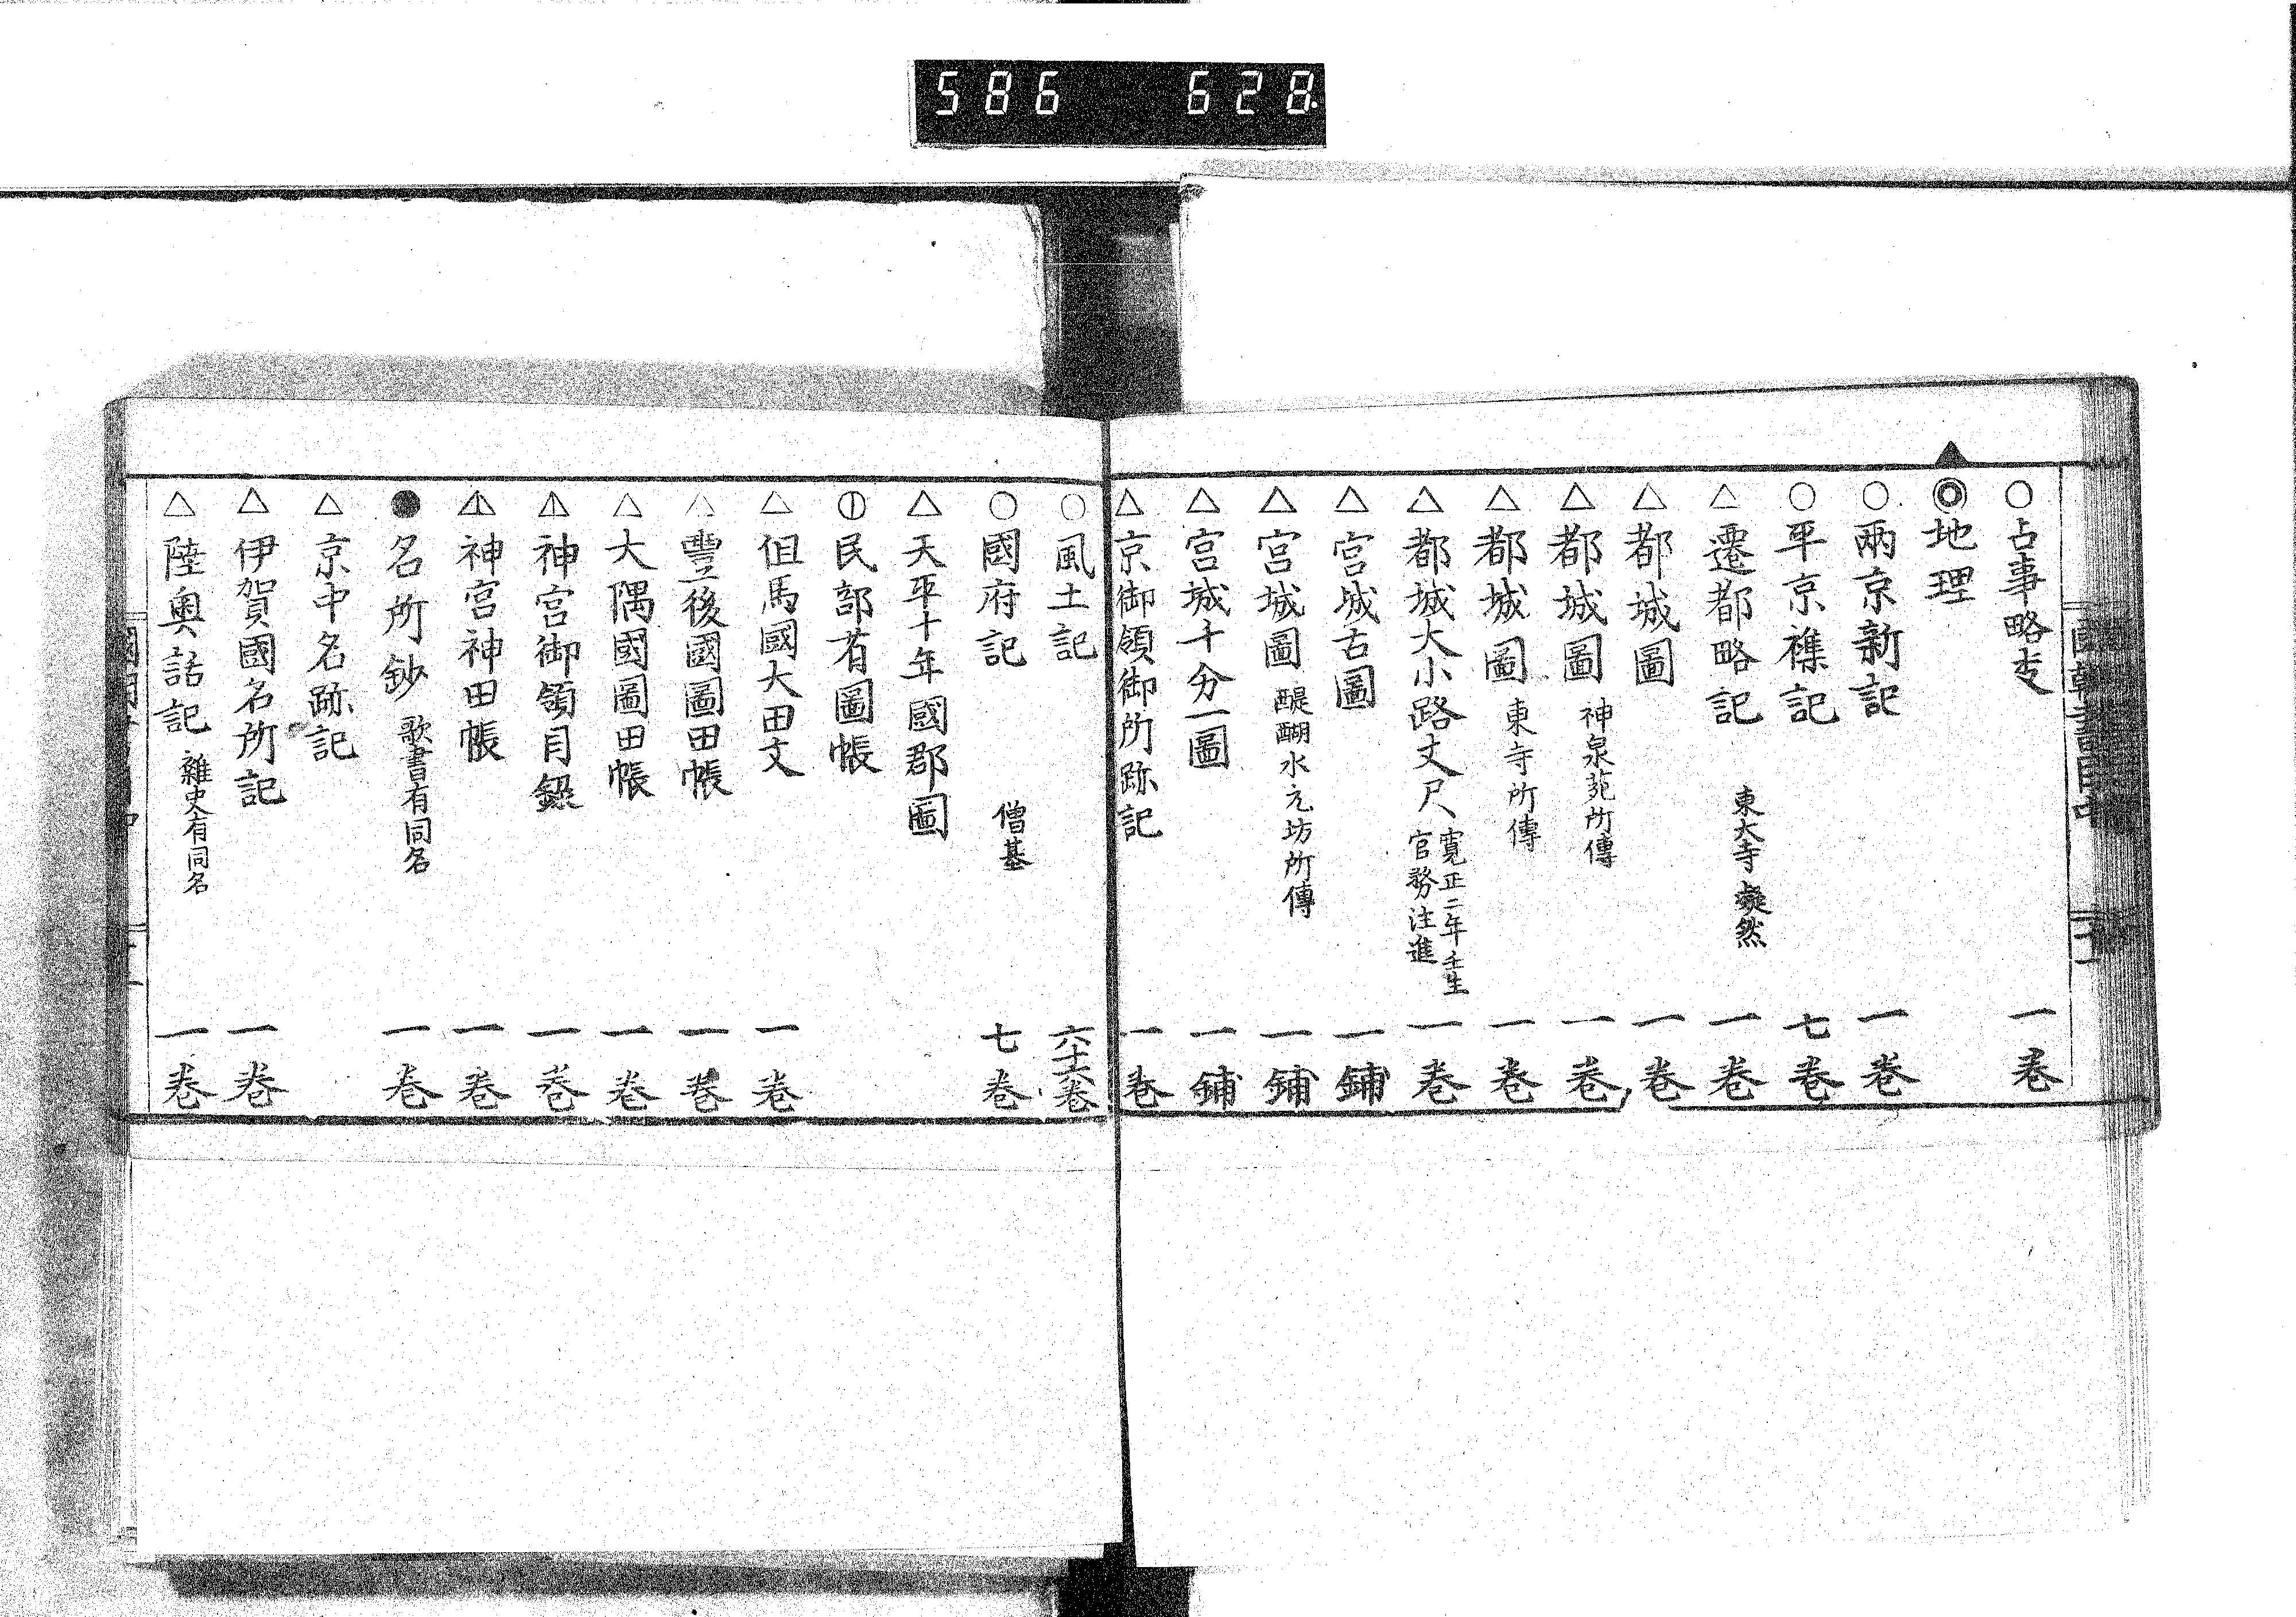 586 628
○占事略决 一卷
◎地理
○兩京新記 一卷
○平京襍記 七卷
△遷都略記 東大寺凝然 一卷
△都城圖 一卷
△都城圖 神泉苑所傳 一卷
△都城圖 東寺所傳 一卷
△都城大小路丈尺 寬正二年壬生官務注進 一卷
△宮城古圖 一鋪
△宮城圖 醍醐水元坊所傳 一鋪
△宮城十分一圖 一鋪
△京御領御所跡記 一卷
○風土記 六十六卷
○國府記 僧基 七卷
△天平十年國郡圖
民部省圖帳
△但馬國大田文 一卷
△豐後國圖田帳 一卷
△大隅國圖田帳 一卷
神宮御領目錄 一卷
神宮神田帳 一卷
●名所鈔 歌書有同名 一卷
△京中名跡記
△伊賀國名所記 一卷
△陸奥話記 雜史有同名 一卷